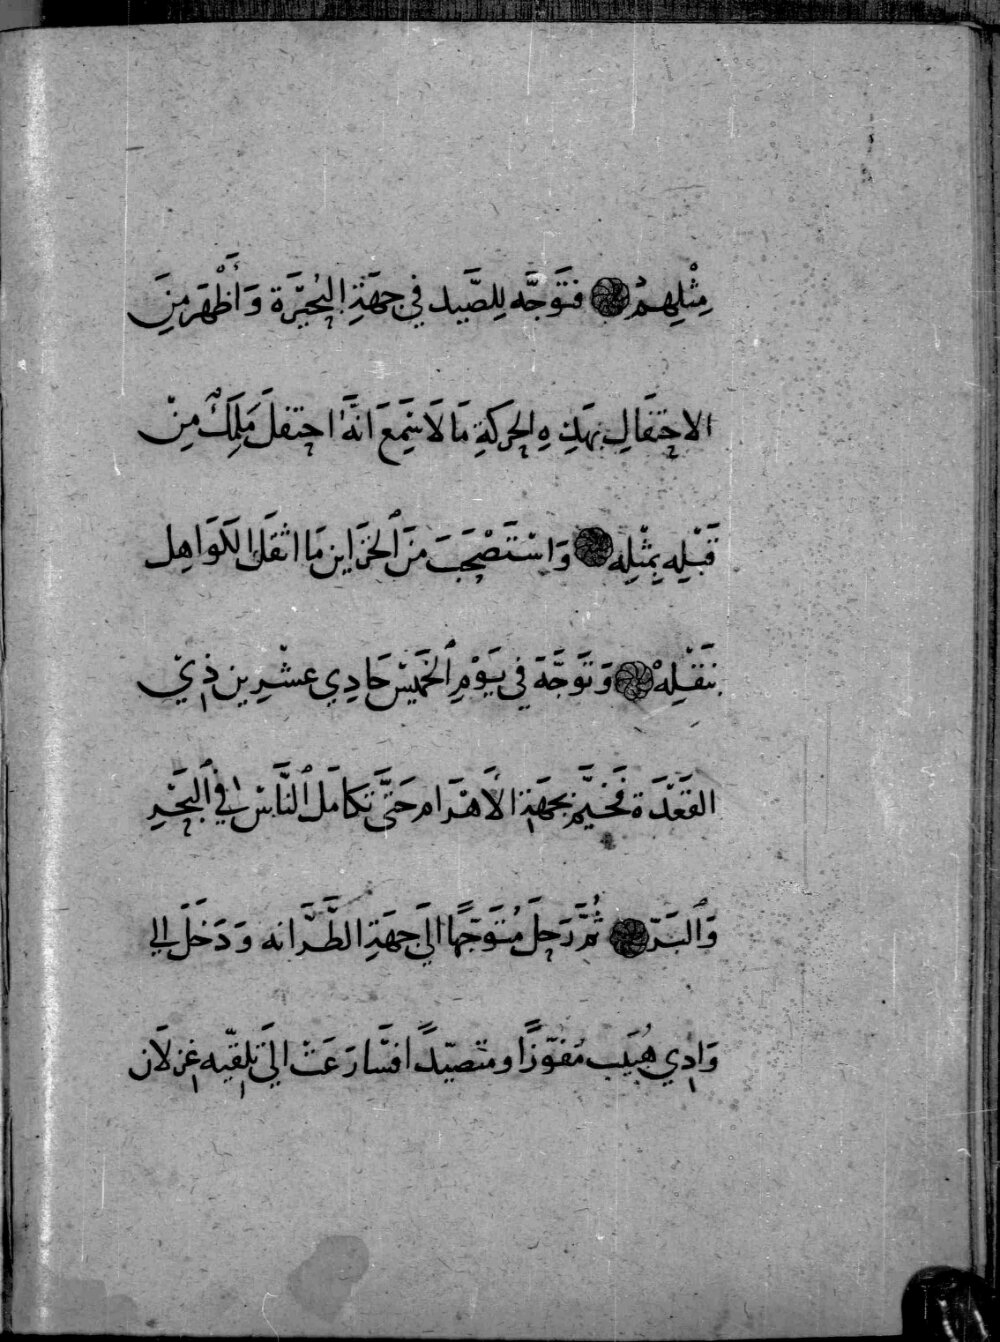 مِثْلِهِمْ ۞ فَتَوَجَّه لِلصَّيد في جهَةِ البُحَيْرَة وَأَظْهَرَ مِنَ
الاحتفَالِ بهَذِهِ الحركَةِ مَا لَا سَمِعَ انَّهُ احتفلَ مَلِكٌ مِنْ
قَبْلِه بِمثْلِه ۞ وَاسْتَصْحَبَ مِنَ الخزَاين مَا اثقَلَ الكَوَاهِل
بنَقْلِهْ ۞ وَتَوَجَّهَ في يَوْمِ الخَمْيس حَادِي عشْرين ذيْ
القَعْدَة فَخَيَّم بجهَة الأهْرَام حَتَّى تكامَل النَّاسُ في البَحْرِ
وَالبَرّ ۞ ثُمَّ رَحلَ مُتَوَجّهًا الىَ جهَةِ الطَّرَّانه وَدَخَلَ الي
وَادِي هُبَيَب مُفَوّزًا ومتَصيّدًا فَسَارَعَتْ الىَ تلقّيه غزلَان